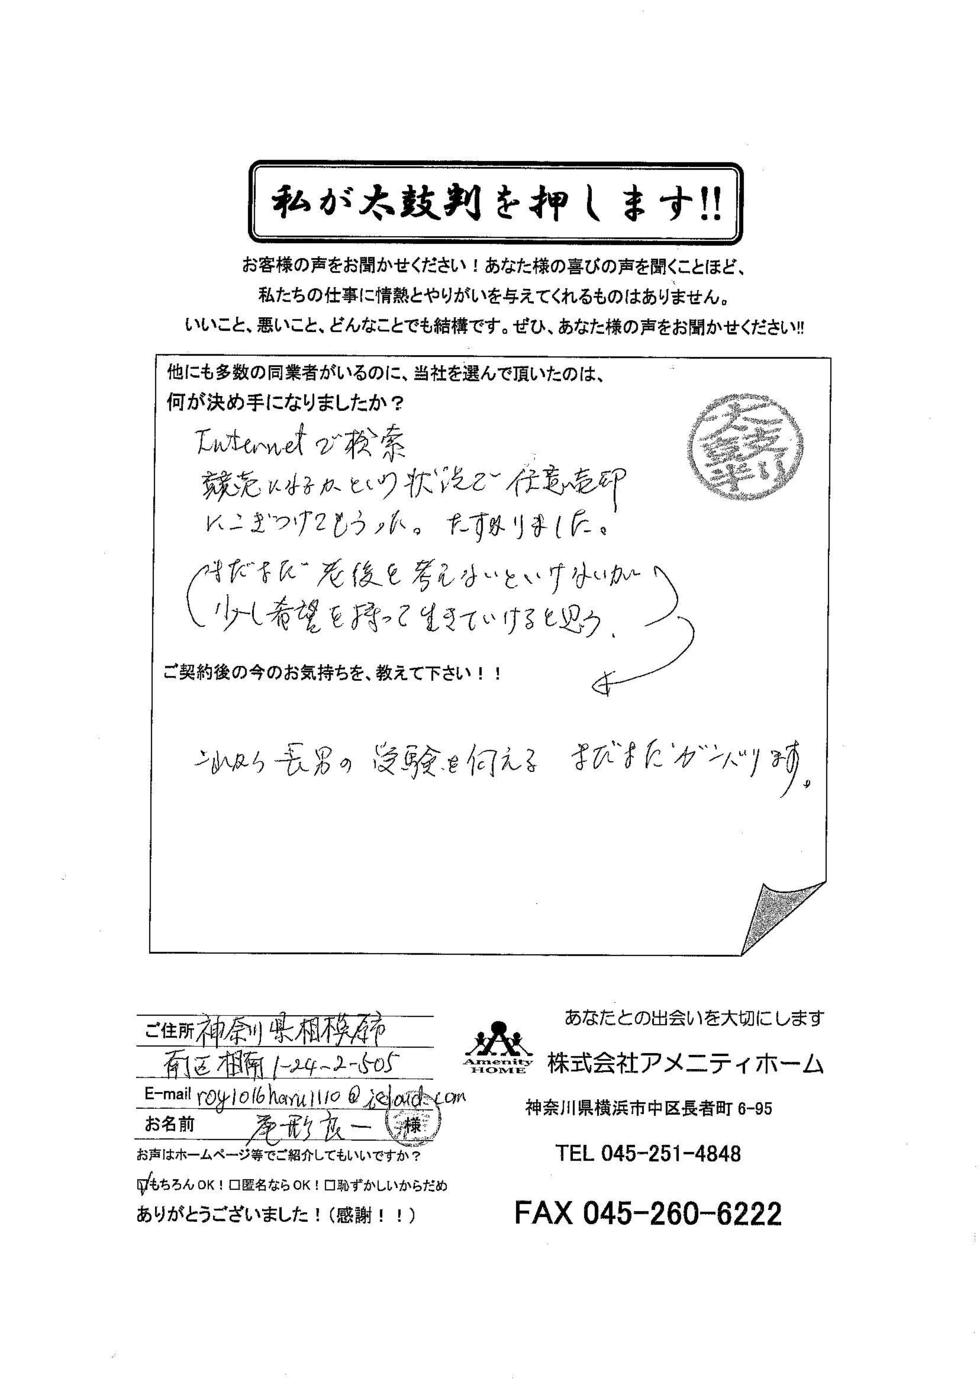 私が太鼓判を押します!!
お客様の声をお聞かせください！あなた様の喜びの声を聞くことほど、
私たちの仕事に情熱とやりがいを与えてくれるものはありません。
いいこと、悪いこと、どんなことでも結構です。ぜひ、あなた様の声をお聞かせください!!
他にも多数の同業者がいるのに、当社を選んで頂いたのは、
何が決め手になりましたか？
太鼓判
Internetで検索
競売になるかという状況で任意売却
にこぎつけてもらった。たすかりました。
まだまだ老後を考えないといけないが
少し希望を持って生きていけると思う.
ご契約後の今のお気持ちを、教えて下さい！！
これから長男の受験を伺える まだまだガンバります。
ご住所 神奈川県相模原市
南区相南1-24-2-505
E-mail roy1016haru1110@icloud.com
お名前 尾形良一 様
お声はホームページ等でご紹介してもいいですか？
☑もちろんOK！□匿名ならOK！□恥ずかしいからだめ
ありがとうございました！（感謝！！）
あなたとの出会いを大切にします
Amenity
HOME
株式会社アメニティホーム
神奈川県横浜市中区長者町 6-95
TEL 045-251-4848
FAX 045-260-6222